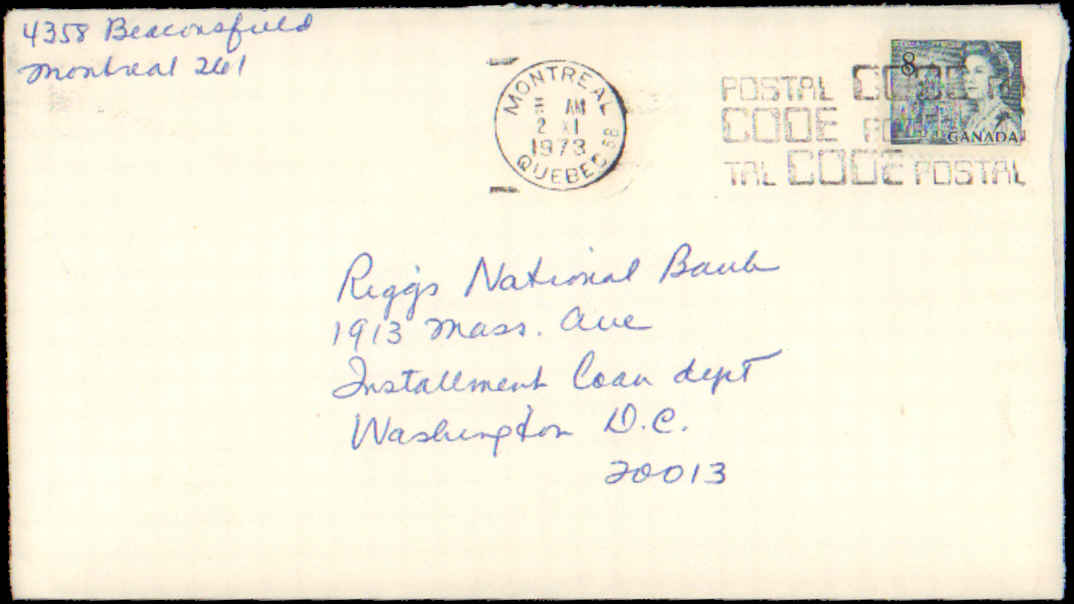 4358 Beaconsfield
Montreal 261
MONTREAL
AM
2 XI
1973
QUEBEC 58
POSTAL CODE PO
CODE PO
TAL CODE POSTAL
8
CANADA
Riggs National Bank
1913 Mass. Ave
Installment Loan dept
Washington D.C.
20013